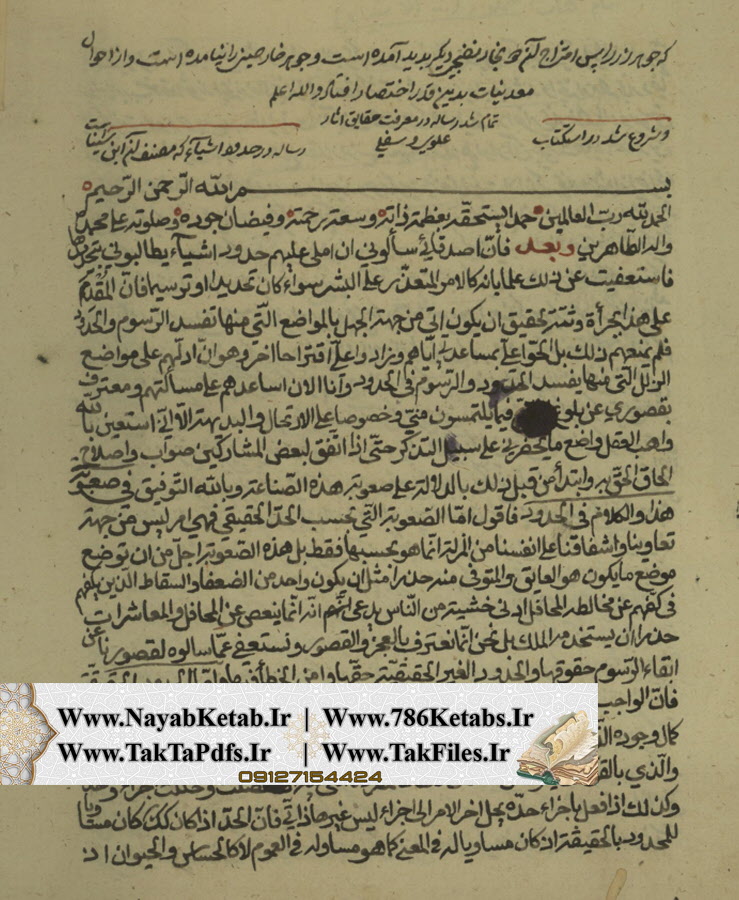 که جوهر زر را پس امتزاج آنچه بخار منضجی دیگر پدید آمده است و جوهر خارصینی را نیامده است و از احوال
معدنیات بدین قدر اختصار افتاد والله اعلم
تمام شد رساله در معرفت حقایق آثار
علوی و سفلی
و شروع شد در استکتاب
رساله در حدود اشیاء که مصنف آن ابن سیناست
بسم الله الرحمن الرحیم
الحمد لله رب العالمین حمدا یستحقه بعظمة ذاته وسعة رحمته وفیضان جوده وصلوته علی محمد
واله الطاهرین وبعد فان اصدقائی سألونی ان املی علیهم حدود اشیاء یطالبونی بتحدیدها
فاستعفیت عن ذلک علما بانه کالامر المتعذر علی البشر سواء کان تحدیدا او ترسیما فان المقدم
علی هذا بجرأة وثقة لحقیق ان یکون اتی من جهة الجهل بالمواضع التی منها تفسد الرسوم والحدود
فلم یمنعهم ذلک بل الحوا علی بمساعدتی ایاهم وزادوا علی اقتراحا اخر وهو ان ادلهم علی مواضع
الزلل التی منها یفسد الحدود والرسوم فی الحدود وانا الان اساعدهم علی مسألتهم ومعترف
بقصوری عن بلوغ فیما یلتمسون منی وخصوصا علی الارتجال والبدیهة الا انی استعین بالله
واهب العقل واضع ما یحضرنی علی سبیل التذکر حتی اذا اتفق لبعض المشارکین صواب واصلاح
الحاق الحق به وابتدأ من قبل ذلک بالدلالة علی صعوبة هذه الصناعة وبالله التوفیق فی صعوبة
هذا والکلام فی الحدود فاقول اما الصعوبة التی بحسب الحد الحقیقی فهی امر لیس من جهة
تعاوینا واشفاقنا علی انفسنا من الزلة انما هو بحسبها فقط بل هذه الصعوبة اجل من ان توضع
موضع ما یکون هو العایق والمتوقی منه حذرا مثل ان یکون واحد من الضعفاء السقاط الذین
فی کفهم عن مخالطة المحافل ادنی خشیة من الناس یدعی انه انما ینعص عن المحافل والمعاشرات
حذرا ان یستخدمه الملک بل نحن انما نعترف بالعجز والقصور ونستعفی عما سألوه لقصورنا عن
ابقاء الرسوم حقوقها والحدود الغیر الحقیقیة حقها وامن الخطأ
فان الواجب
Www.NayabKetab.Ir | Www.786Ketabs.Ir
کمال وجوده
Www.TakTaPdfs.Ir | Www.TakFiles.Ir
والذی
09127154424
وکذلک اذا فعل باجزاء حده یحل اخر الامر الی اجزاء لیس غیرها ذاتی فان الحد اذا کان کذلک کان مساویا
للمحدود بالحقیقة اذ کان مساویا له فی المعنی کما هو مساو له فی العموم لا کالحساس والحیوان